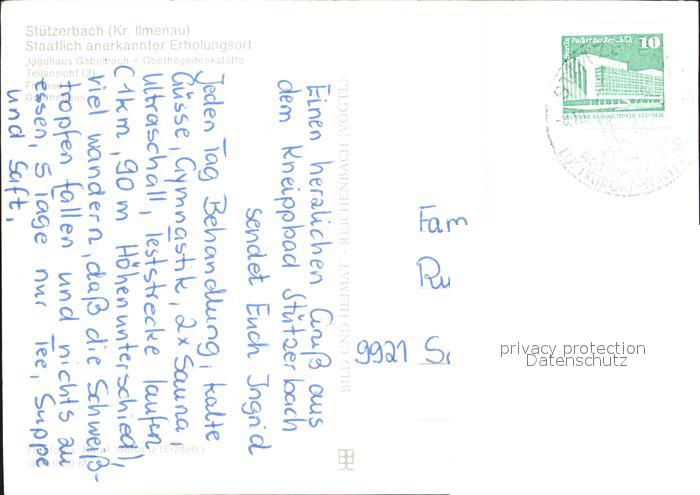 Stützerbach (Kr. Ilmenau)
Staatlich anerkannter Erholungsort
Jagdhaus Gabelbach – Goethegedenkstätte
Teilansicht (2)
Einen herzlichen Gruß aus
dem Kneippbad Stützerbach
sendet Euch Ingrid
Jeden Tag Behandlung, kalte
Güsse, Gymnastik, 2x Sauna,
Ultraschall, Teststrecke laufen
(1km, 90 m Höhenunterschied),
viel wandern, daß die Schweiß-
tropfen fallen und nichts zu
essen, 5 Tage nur Tee, Suppe
und Saft,
BILD UND HEIMAT · REICHENBACH (VOGTL)
Palast der Republik
10
DEUTSCHE DEMOKRATISCHE REPUBLIK
Fam
Ru
9921
privacy protection
Datenschutz